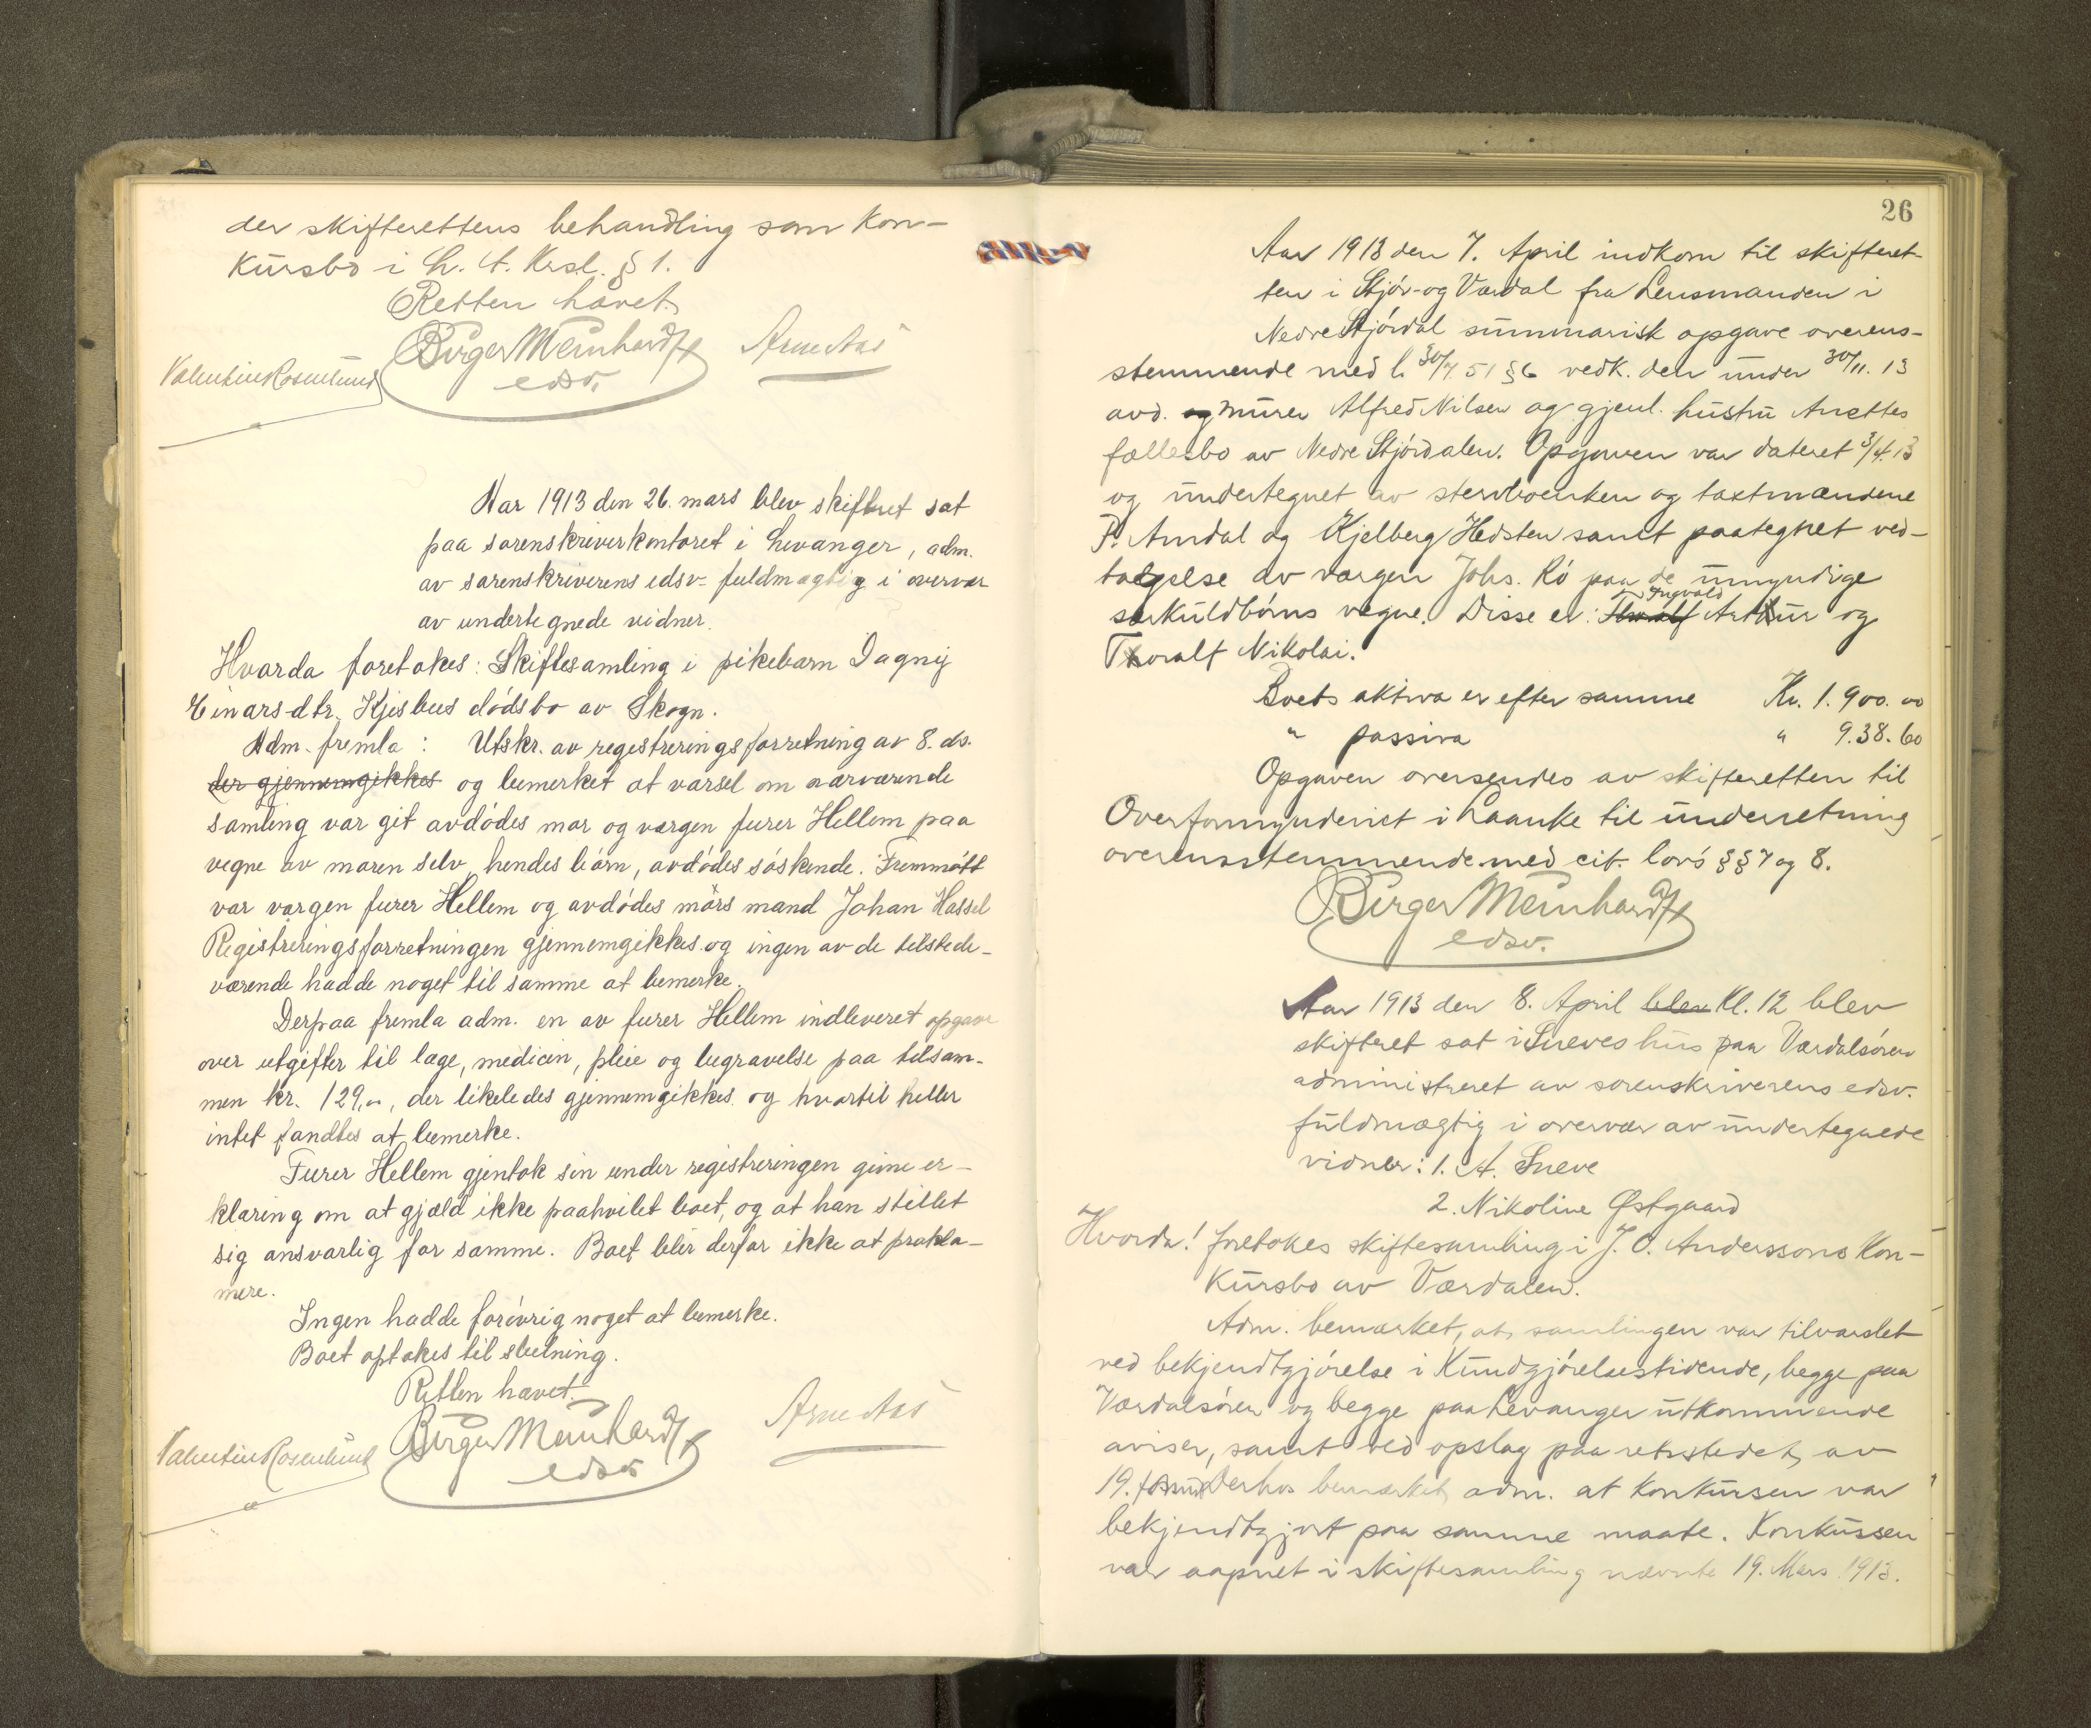 der skifterettens behandling som kon-
kursbo i h. t. Krsl. § 1.
Retten hævet.
Birger Meinhardt
edsv.
Arne Aas
Valentin Rosenlund
Aar 1913 den 26. mars blev skifteret sat
paa sorenskriverkontoret i Levanger, adm.
av sorenskriverens edsv. fuldmægtig i overvær
av undertegnede vidner.
Hvorda foretokes: Skiftesamling i pikebarn Dagny
Einarsdtr. Kjesbus dødsbo av Skogn.
Adm. fremla: Utskr. av registreringsforretning av 8. ds.
der gjennemgikkes og bemerket at varsel om nærværende
samling var git avdødes mor og værgen furer Hellem paa
vegne av moren selv, hendes børn, avdødes søskende. Fremmøtt
var værgen furer Hellem og avdødes mors mand Johan Hassel
Registreringsforretningen gjennemgikkes og ingen av de tilstede-
værende hadde noget til samme at bemerke.
Derpaa fremla adm. en av furer Hellem indleveret opgave
over utgifter til læge, medicin, pleie og begravelse paa tilsam-
men kr. 129,-, der likeledes gjennemgikkes og hvortil heller
intet fandtes at bemerke.
Furer Hellem gjentok sin under registreringen givne er-
klæring om at gjæld ikke paahvilet boet, og at han stillet
sig ansvarlig for samme. Boet blir derfor ikke at prokla-
mere.
Ingen hadde forøvrig noget at bemerke.
Boet optokes til slutning.
Retten hævet.
Birger Meinhardt
edsv.
Arne Aas
Valentin Rosenlund
26
Aar 1913 den 7. April indkom til skifteret-
ten i Stjør- og Værdal fra Lensmanden i
Nedre Stjørdal summarisk opgave overens-
stemmende med l. 30/7 51 § 6 vedk. den under 30/11. 13
avd. og murer Alfred Nilsen og gjenl. hustru Anettes
fællesbo av Nedre Stjørdalen. Opgaven var dateret 3/4. 13
og undertegnet av stervboenken og taxtmændene
P. Amdal og Kjelberg Hedsten samt paategnet ved-
tagelse av værgen Johs. Rø paa de umyndige
særkuldbørns vegne. Disse er: Ingvald Arthur og
Thoralf Nikolai.
Boets aktiva er efter samme Kr. 1.900.00
" passiva " 9.38.60
Opgaven oversendes av skifteretten til
Overformynderiet i Laanke til underretning
overensstemmende med cit. lov's §§ 7 og 8.
Birger Meinhardt
edsv.
Aar 1913 den 8. April blev Kl. 12 blev
skifteret sat i Sneves hus paa Værdalsøren
administreret av sorenskriverens edsv.
fuldmægtig i overvær av undertegnede
vidner: 1. A. Sneve
2. Nikoline Østgaard
Hvorda! foretokes skiftesamling i J. O. Anderssons kon-
kursbo av Værdalen.
Adm. bemærket, at samlingen var tilvarslet
ved bekjendtgjørelse i Kundgjørelsestidende, begge paa
Værdalsøren og begge paa Levanger utkommende
aviser, samt ved opslag paa retsstedet, av
19. f.m. Derhos bemærket adm. at konkursen var
bekjendtgjort paa samme maate. Konkursen
var aapnet i skiftesamling nævnte 19. Mars 1913.